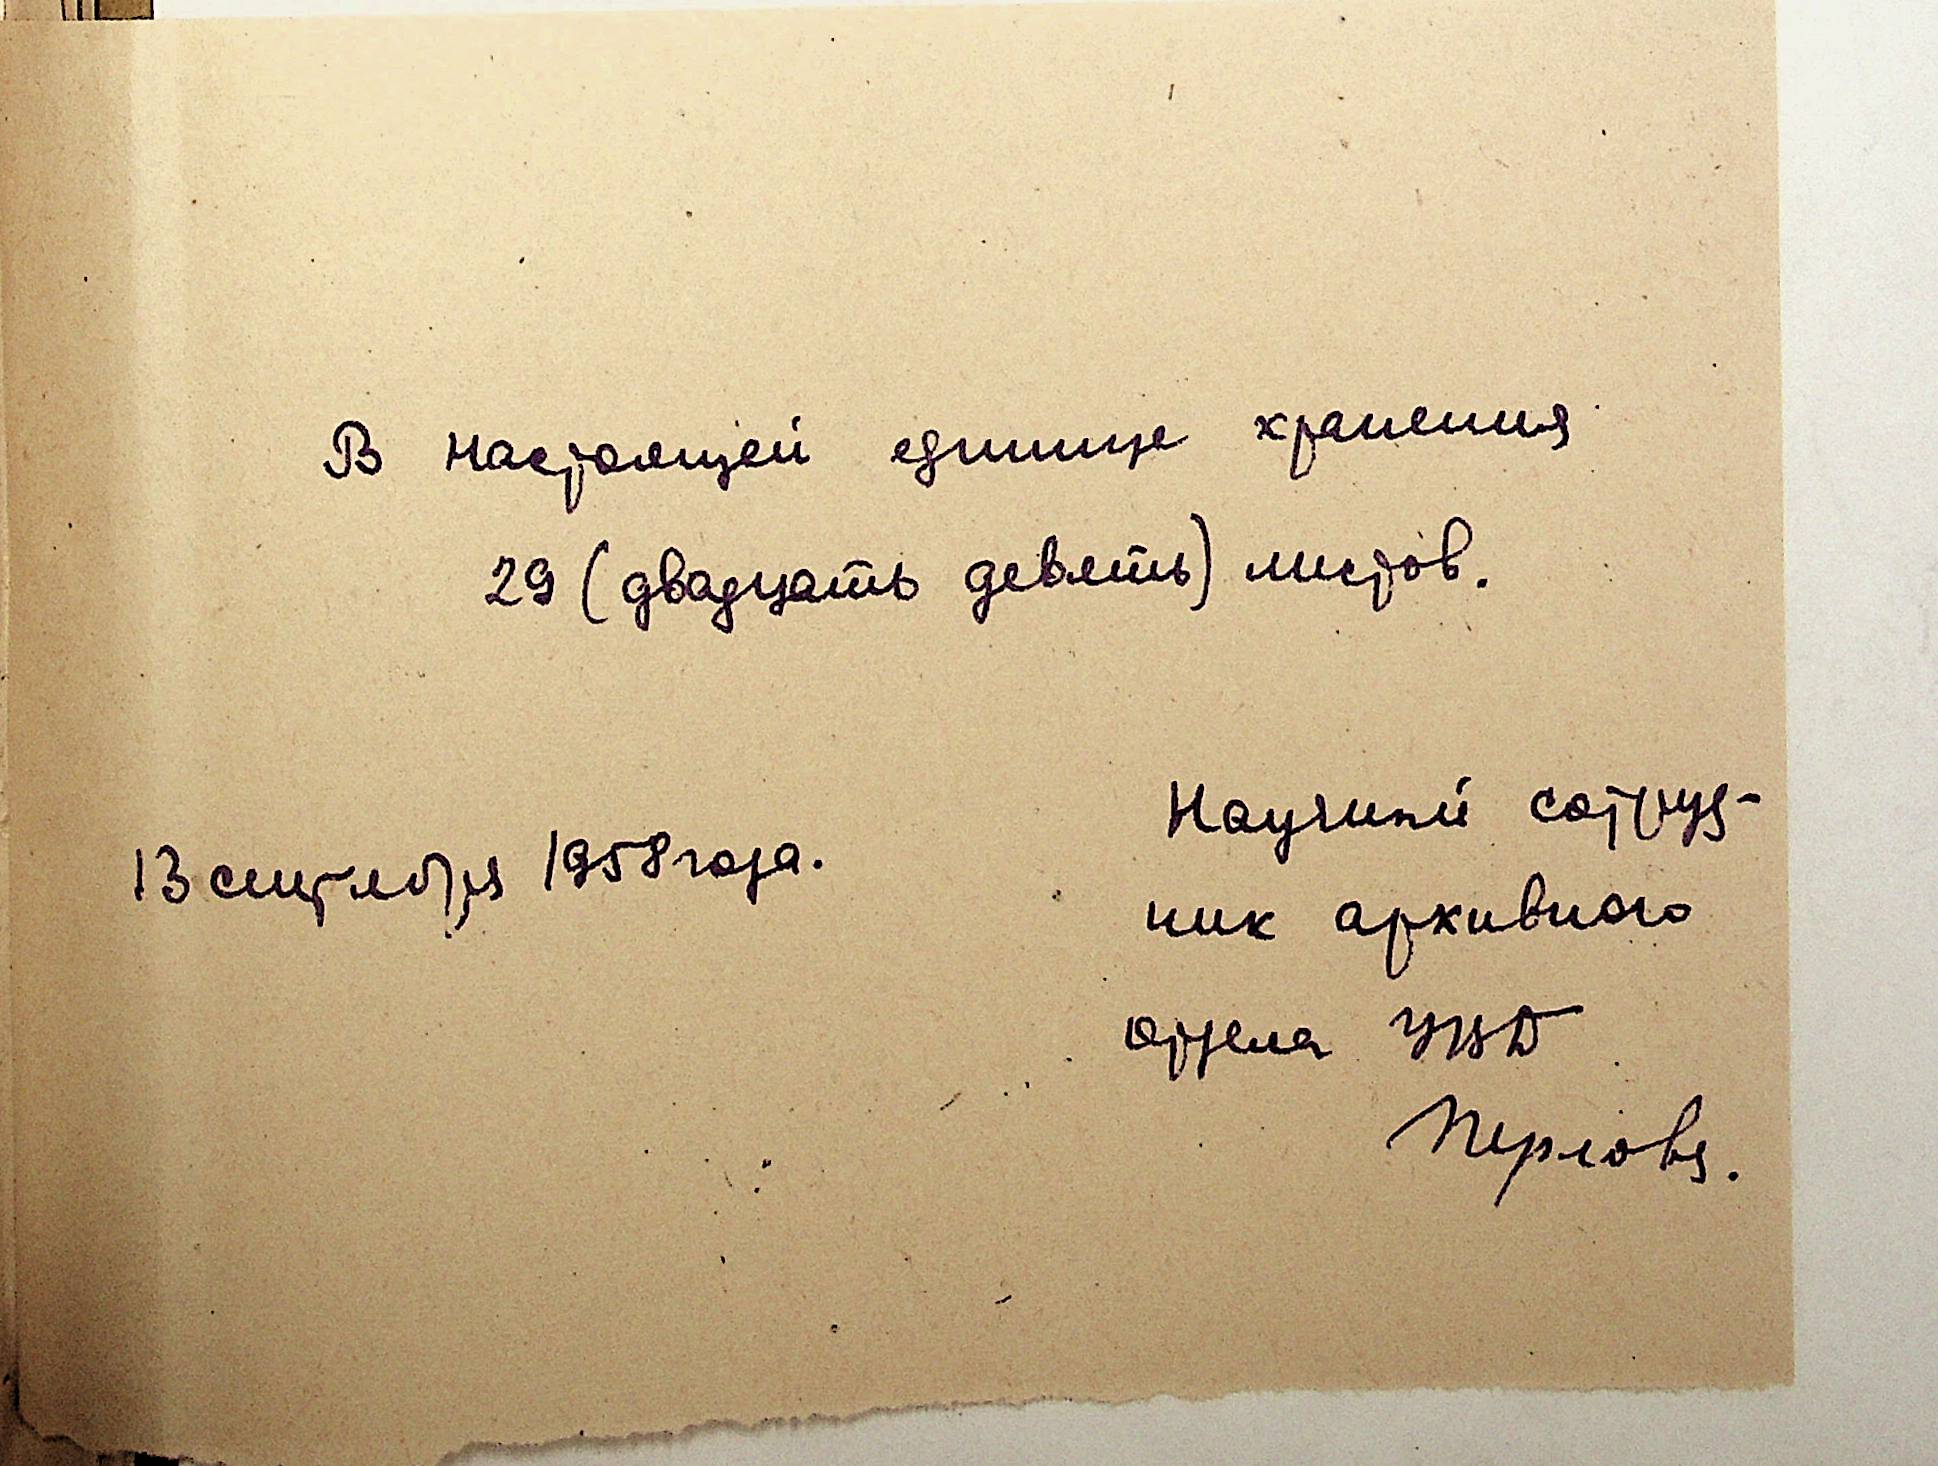 В настоящей единице хранения
29 (двадцать девять) листов.
13 сентября 1958 года.
Научный сотруд-
ник архивного
отдела УВД